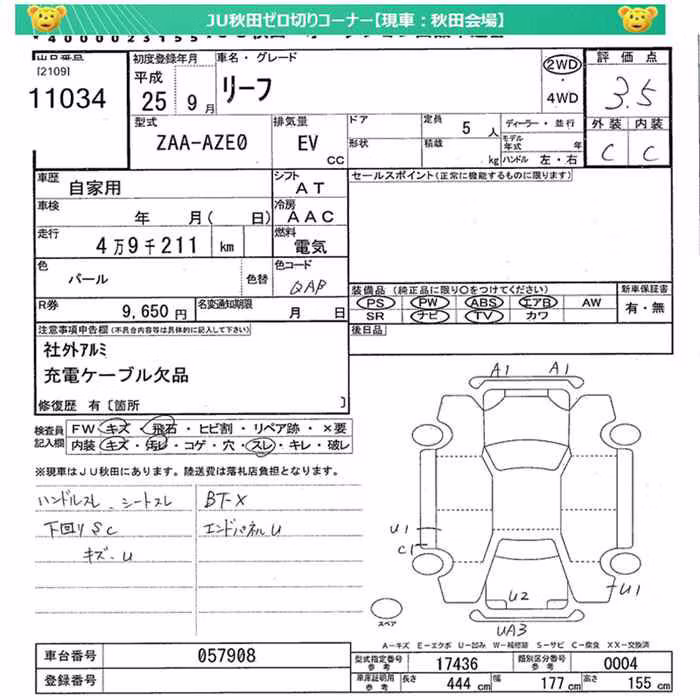 JU秋田ゼロ切りコーナー【現車：秋田会場】
[2109]
11034
初度登録年月
平成
25 9月
車名・グレード
リーフ
2WD
・
4WD
評価点
3.5
外装 内装
C C
型式
ZAA-AZE0
排気量
EV
CC
ドア
形状
定員 5人
積載 kg
ディーラー・並行
モデル年式 年
ハンドル 左・右
車歴
自家用
シフト
AT
車検
年 月( 日)
冷房
AAC
走行
4万9千211 km
燃料
電気
色
パール
色替
色コード
QAB
R券
9,650円
名変通知期限
月 日
セールスポイント(正常に機能するものに限ります)
装備品 (純正品に限り○をつけてください)
PS PW ABS エアB AW
SR ナビ TV カワ
新車保証書
有・無
後日品
注意事項申告欄(不具合内容等は具体的に記入して下さい)
社外アルミ
充電ケーブル欠品
修復歴 有〔箇所 〕
検査員
記入欄
FW キズ・飛石・ヒビ割・リペア跡・×要
内装 キズ・汚レ・コゲ・穴・スレ・キレ・破レ
※現車はJU秋田にあります。陸送費は落札店負担となります。
ハンドルスレ、シートスレ
下回りSC
キズ・U
BT-X
エンドパネルU
A1 A1
U1
C1
U1
U2
UA3
スペア
A－キズ E－エクボ U－凹み W－補修跡 S－サビ C－腐食 XX－交換済
車台番号
057908
登録番号
型式指定番号
参考
17436
類別区分番号
参考
0004
車庫証明用
参考
長さ 444 cm
幅 177 cm
高さ 155 cm